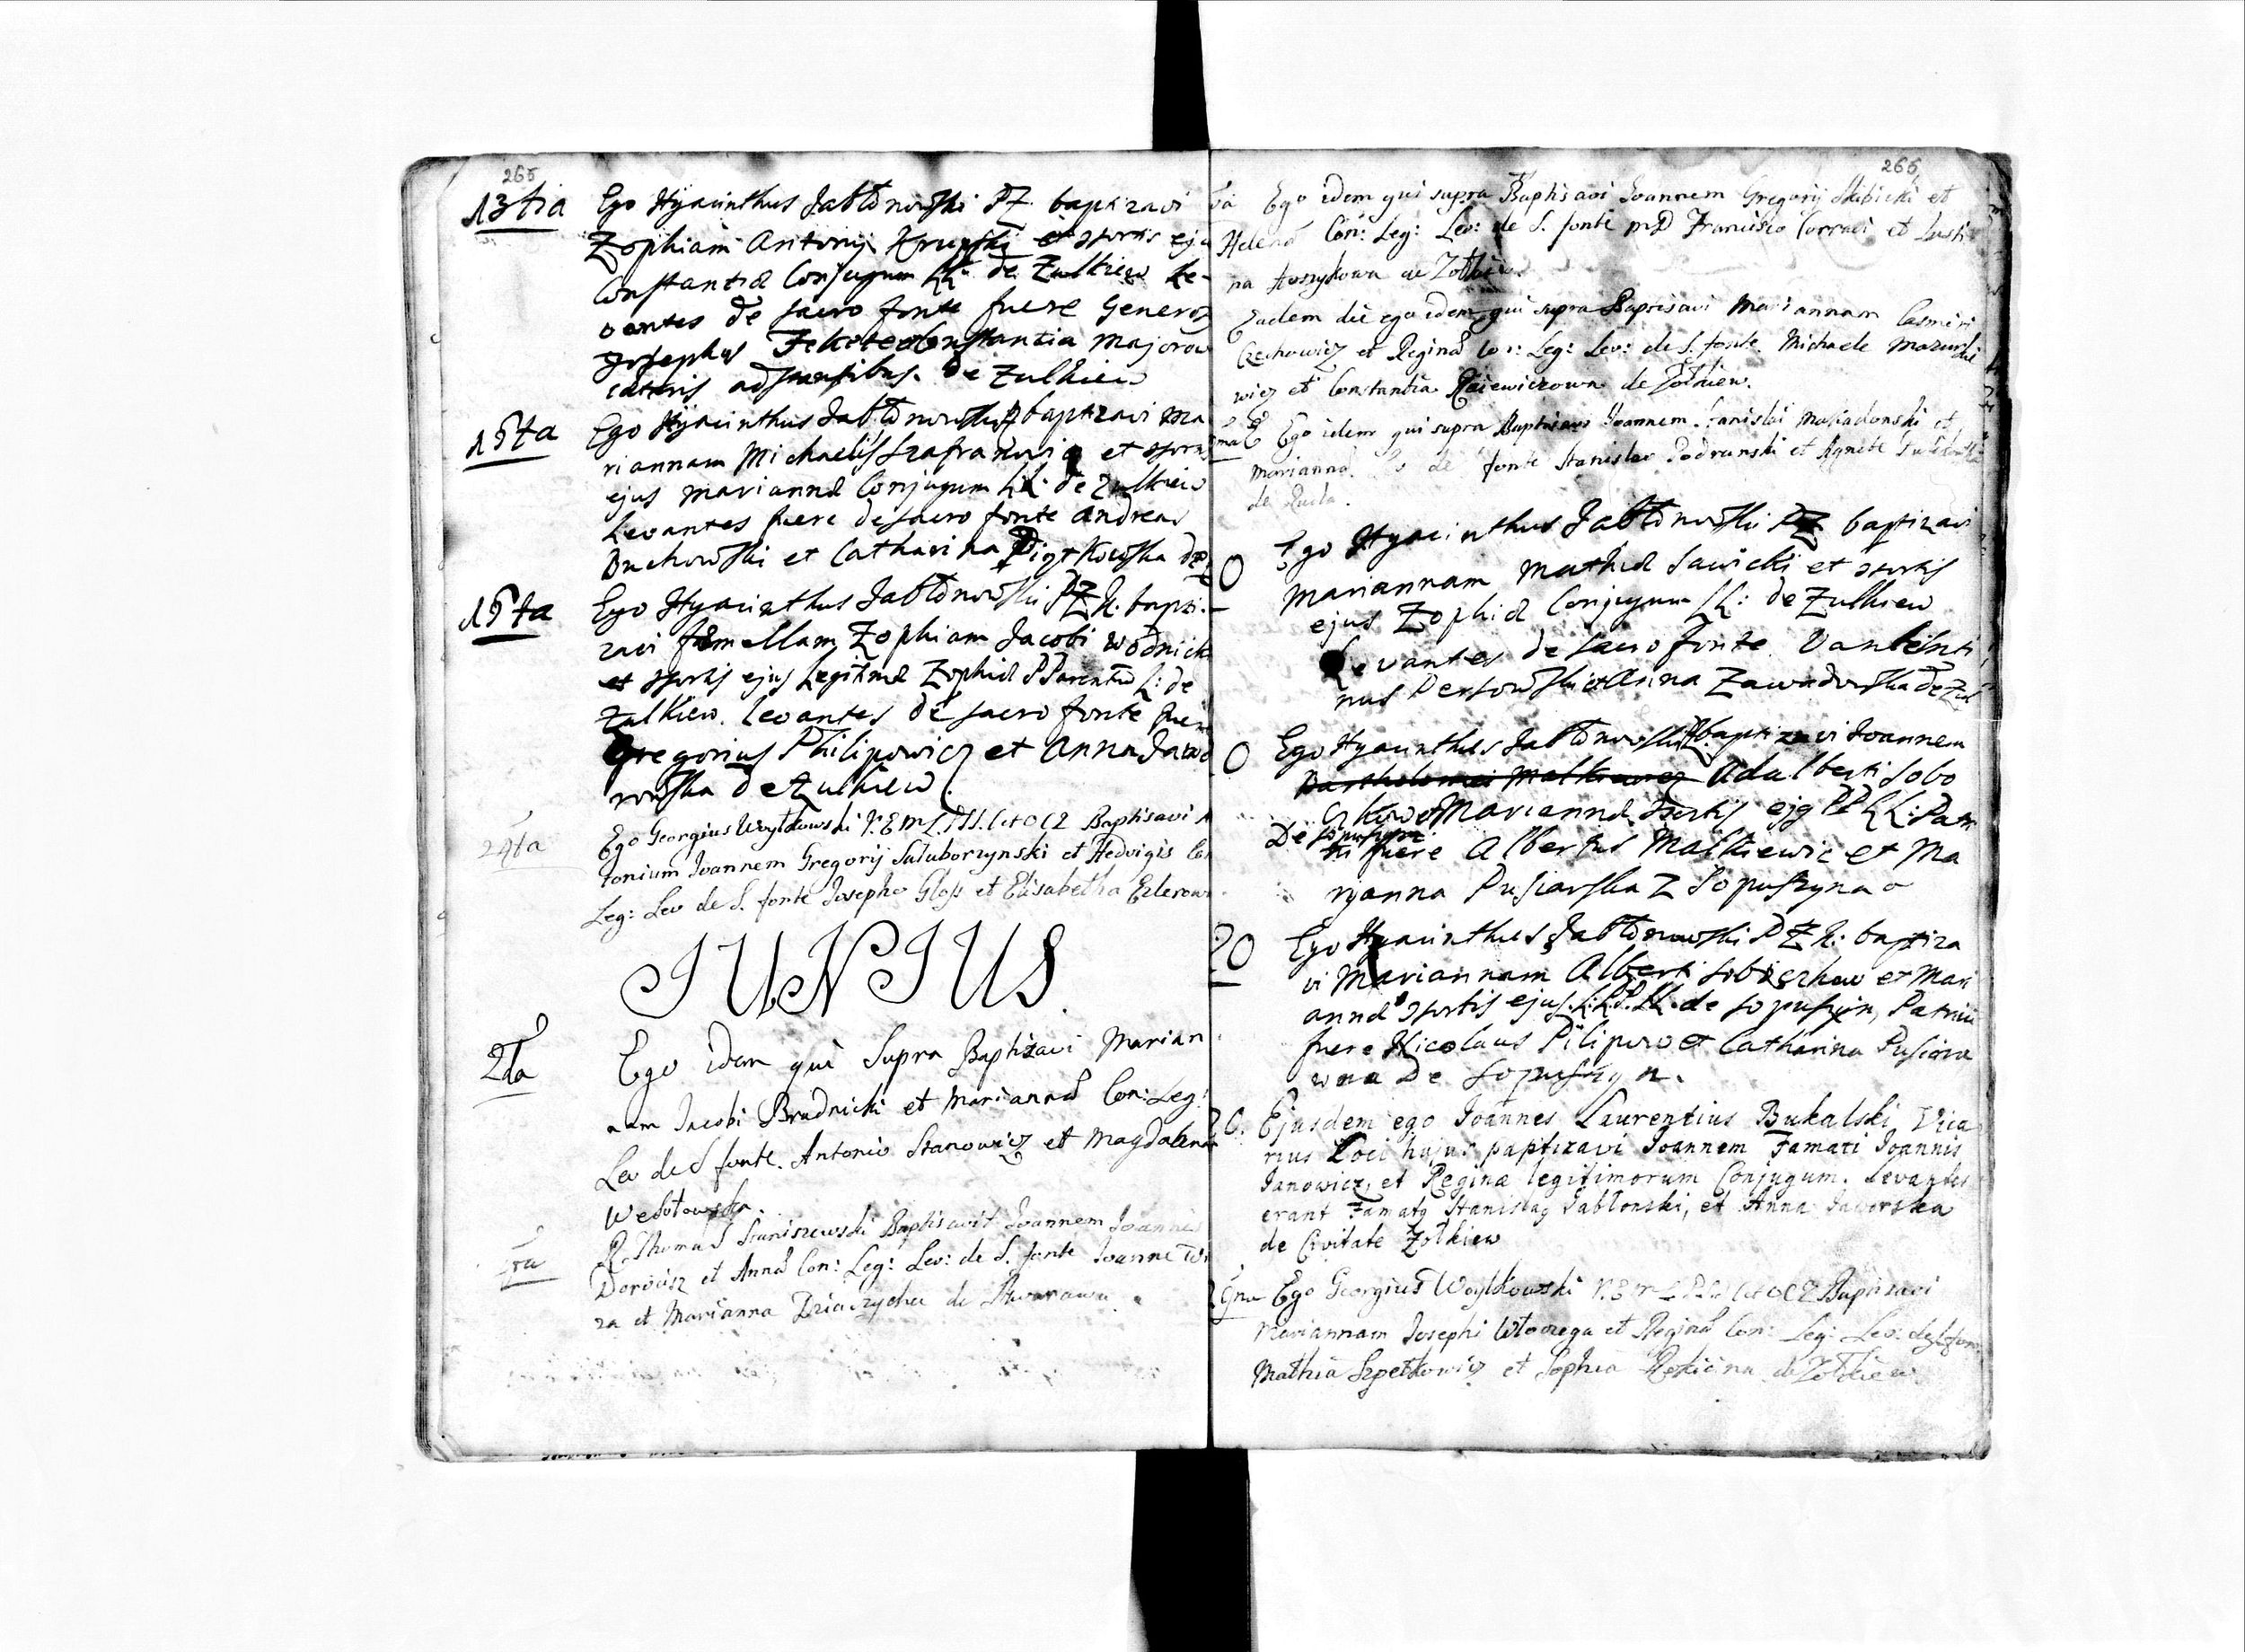 265
13tia Ego Hyacinthus Jabłonowski PZ. baptizavi
Zophiam Antonij Krupski et Uxoris eju
Constantiæ Conjugum LL: de Zulkiew Le-
vantes de sacro fonte fuere Generos
Josephus Fekete Constantia Majorow
cæteris adstantibus. de Zulkiew
15ta Ego Hyacinthus Jabłonowski baptizavi Ma
riannam Michaelis Szafranowicz et Uxoris
ejus Mariannæ Conjugum LL: de Zulkiew
Levantes fuere de sacro fonte Andreas
Buchowski et Catharina Piątkowska de
15ta Ego Hyacinthus Jabłonowski PZK: bapti-
zavi famellam Zophiam Jacobi Wodnick
et Uxoris ejus Legitimæ Zophiæ PParentū L: de
Zulkiew. levantes de sacro fonte fuere
Gregorius Philipowicz et Anna Jawo
rowska de Zulkiew.
24ta Ego Georgius Woytkowski Baptisavi A
tonium Joannem Gregorij Saluborzynski et Hedvigis Co
Leg: Lev de S. fonte Josepho Gloss et Elisabetha Ezlerow
JUNIUS.
2da Ego idem qui Supra Baptizavi Marian
nam Jacobi Brudnicki et Mariannæ Con: Leg:
Lev de S fonte. Antonio Stanowicz et Magdalena
Webłowska.
R. Thomas Staniszewski Baptisavit Joannem Joannis
Dorocisz et Annæ Con: Leg: Lev: de S. fonte Joanne
za et Marianna Dziaczycha de
266
Ego idem qui supra Baptisavi Joannem Gregorij Skibicki et
Helenæ Con: Leg: Lev: de S. fonte Francisco Corradi et Justi
na de Zołkiew
Eadem die ego idem qui supra Baptisavi Mariannam Casmiri
Czechowicz et Reginæ Con: Leg: Lev: de S. fonte. Michaele Mazurki
wicz et Constantia de Zołkiew.
Ego idem qui supra Baptisavi Joannem Stanislai et
Mariannæ. de fonte Stanislao Podrunski et Agnete
de
0 Ego Hyacinthus Jabłonowski PZ baptizavi
Mariannam Mathiæ Sawicki et Uxoris
ejus Zophiæ Conjugum LL: de Zulkiew
Levantes de sacro fonte. Vanlenti
nus Persowski et Anna Zawadowska de Zul
0 Ego Hyacinthus Jabłonowski baptizavi Joannem
Bartholomei Malkiewicz Adalberti Sobo
czkow Mariannæ Uxoris ejg PP LL: Patri
De Sopuszyn
ni fuere Albertus Malkiewic et Ma
ryanna Pusiarska Z Sopuszyna
20 Ego Hyacinthus Jabłonowski PZK: baptiza
vi Mariannam Alberti Sobiczkow et Mari
annæ Uxoris ejus. LL. de Sopuszyn, Patrini
fuere Nicolaus Pilipow et Catharina Pusiara
wna De Sopuszyn.
20. Ejusdem ego Joannes Laurentius Bukalski Vica
rius Loci hujus paptizavi Joannem Famati Joannis
Janowicz, et Reginæ legitimorum Conjugum. Levantes
erant Famatg Stanislag Jabłonski, et Anna Jaworska
de Civitate Zołkiew
Ego Georgius Woytkowski Baptisavi
Mariannam Josephi Włoczega et Reginæ Con: Leg: Lev: de S. fon
Mathia Szpetkowicz et Sophia de Zołkiew